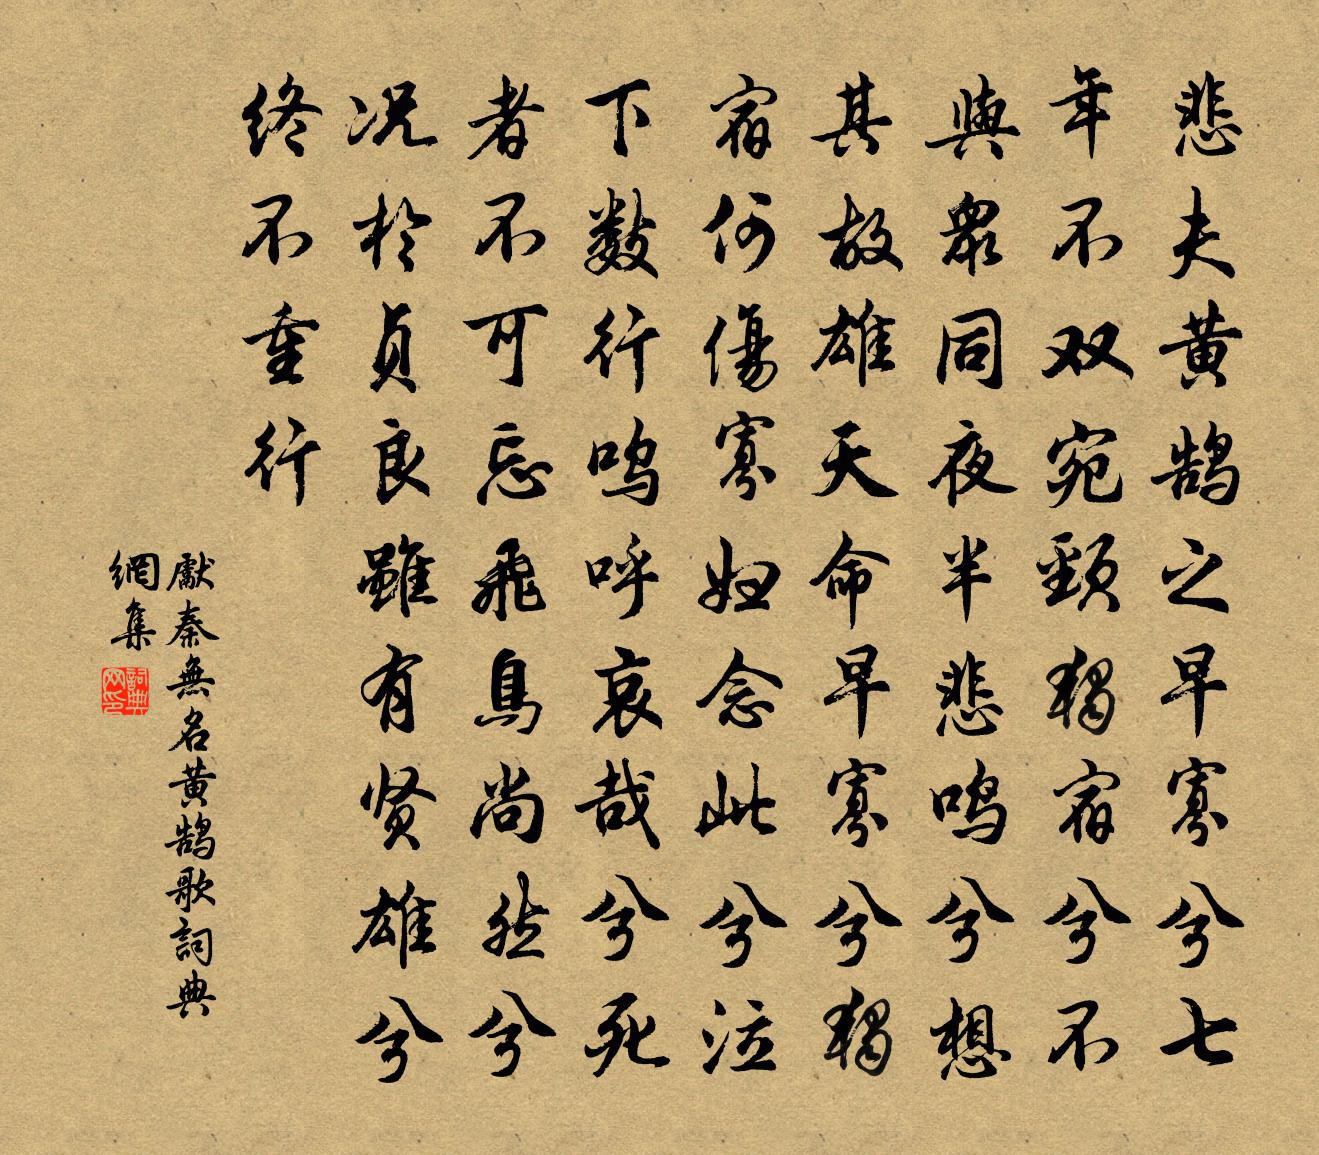 悲夫黄鹄之早寡兮七
年不双宛頸獨宿兮不
與眾同夜半悲鸣兮想
其故雄天命早寡兮獨
宿何傷寡妇念此兮泣
下数行鸣呼哀哉兮死
者不可忘飛鳥尚然兮
况於貞良雖有贤雄兮
终不重行
獻秦無名黄鹄歌詞典
網集
詞典网印